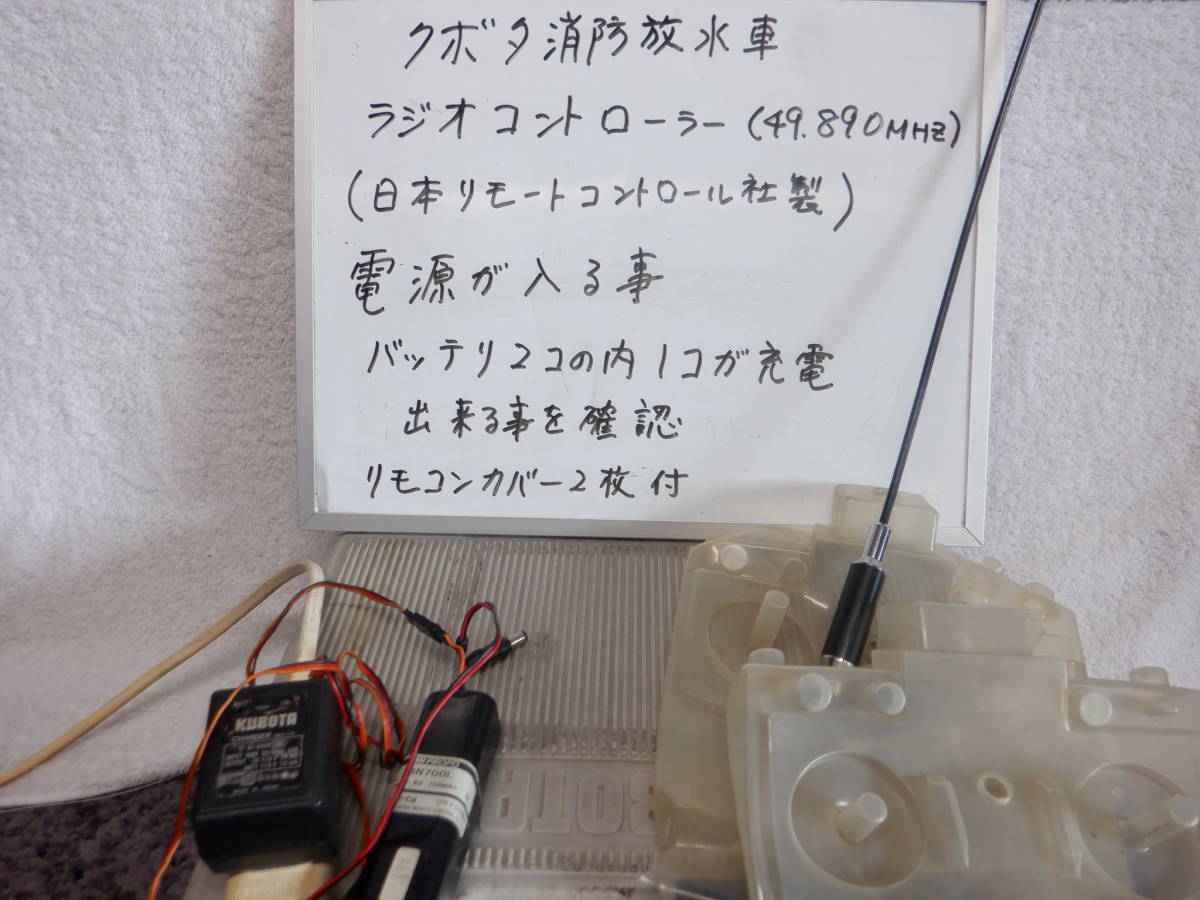 クボタ消防放水車
ラジオコントローラー (49.890MHZ)
(日本リモートコントロール社製)
電源が入る事
バッテリ2コの内1コが充電
出来る事を確認
リモコンカバー2枚付
KUBOTA
CHARGER
N700L
700mAh